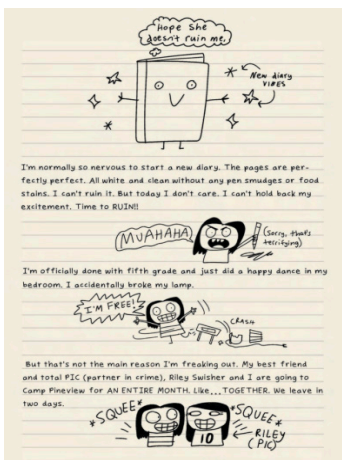 Hope She
doesn't ruin me.
New diary
VIBES
I'm normally so nervous to start a new diary. The pages are per-
fectly perfect. All white and clean without any pen smudges or food
stains. I can't ruin it. But today I don't care. I can't hold back my
excitement. Time to RUIN!!
MUAHAHA
(Sorry, that's
terrifying)
I'm officially done with fifth grade and just did a happy dance in my
bedroom. I accidentally broke my lamp.
I'M FREE!
CRASH
But that's not the main reason I'm freaking out. My best friend
and total PIC (partner in crime), Riley Swisher and I are going to
Camp Pineview for AN ENTIRE MONTH. Like...TOGETHER. We leave in
two days.
*SQUEE*
*SQUEE*
10
RILEY
(PIC)